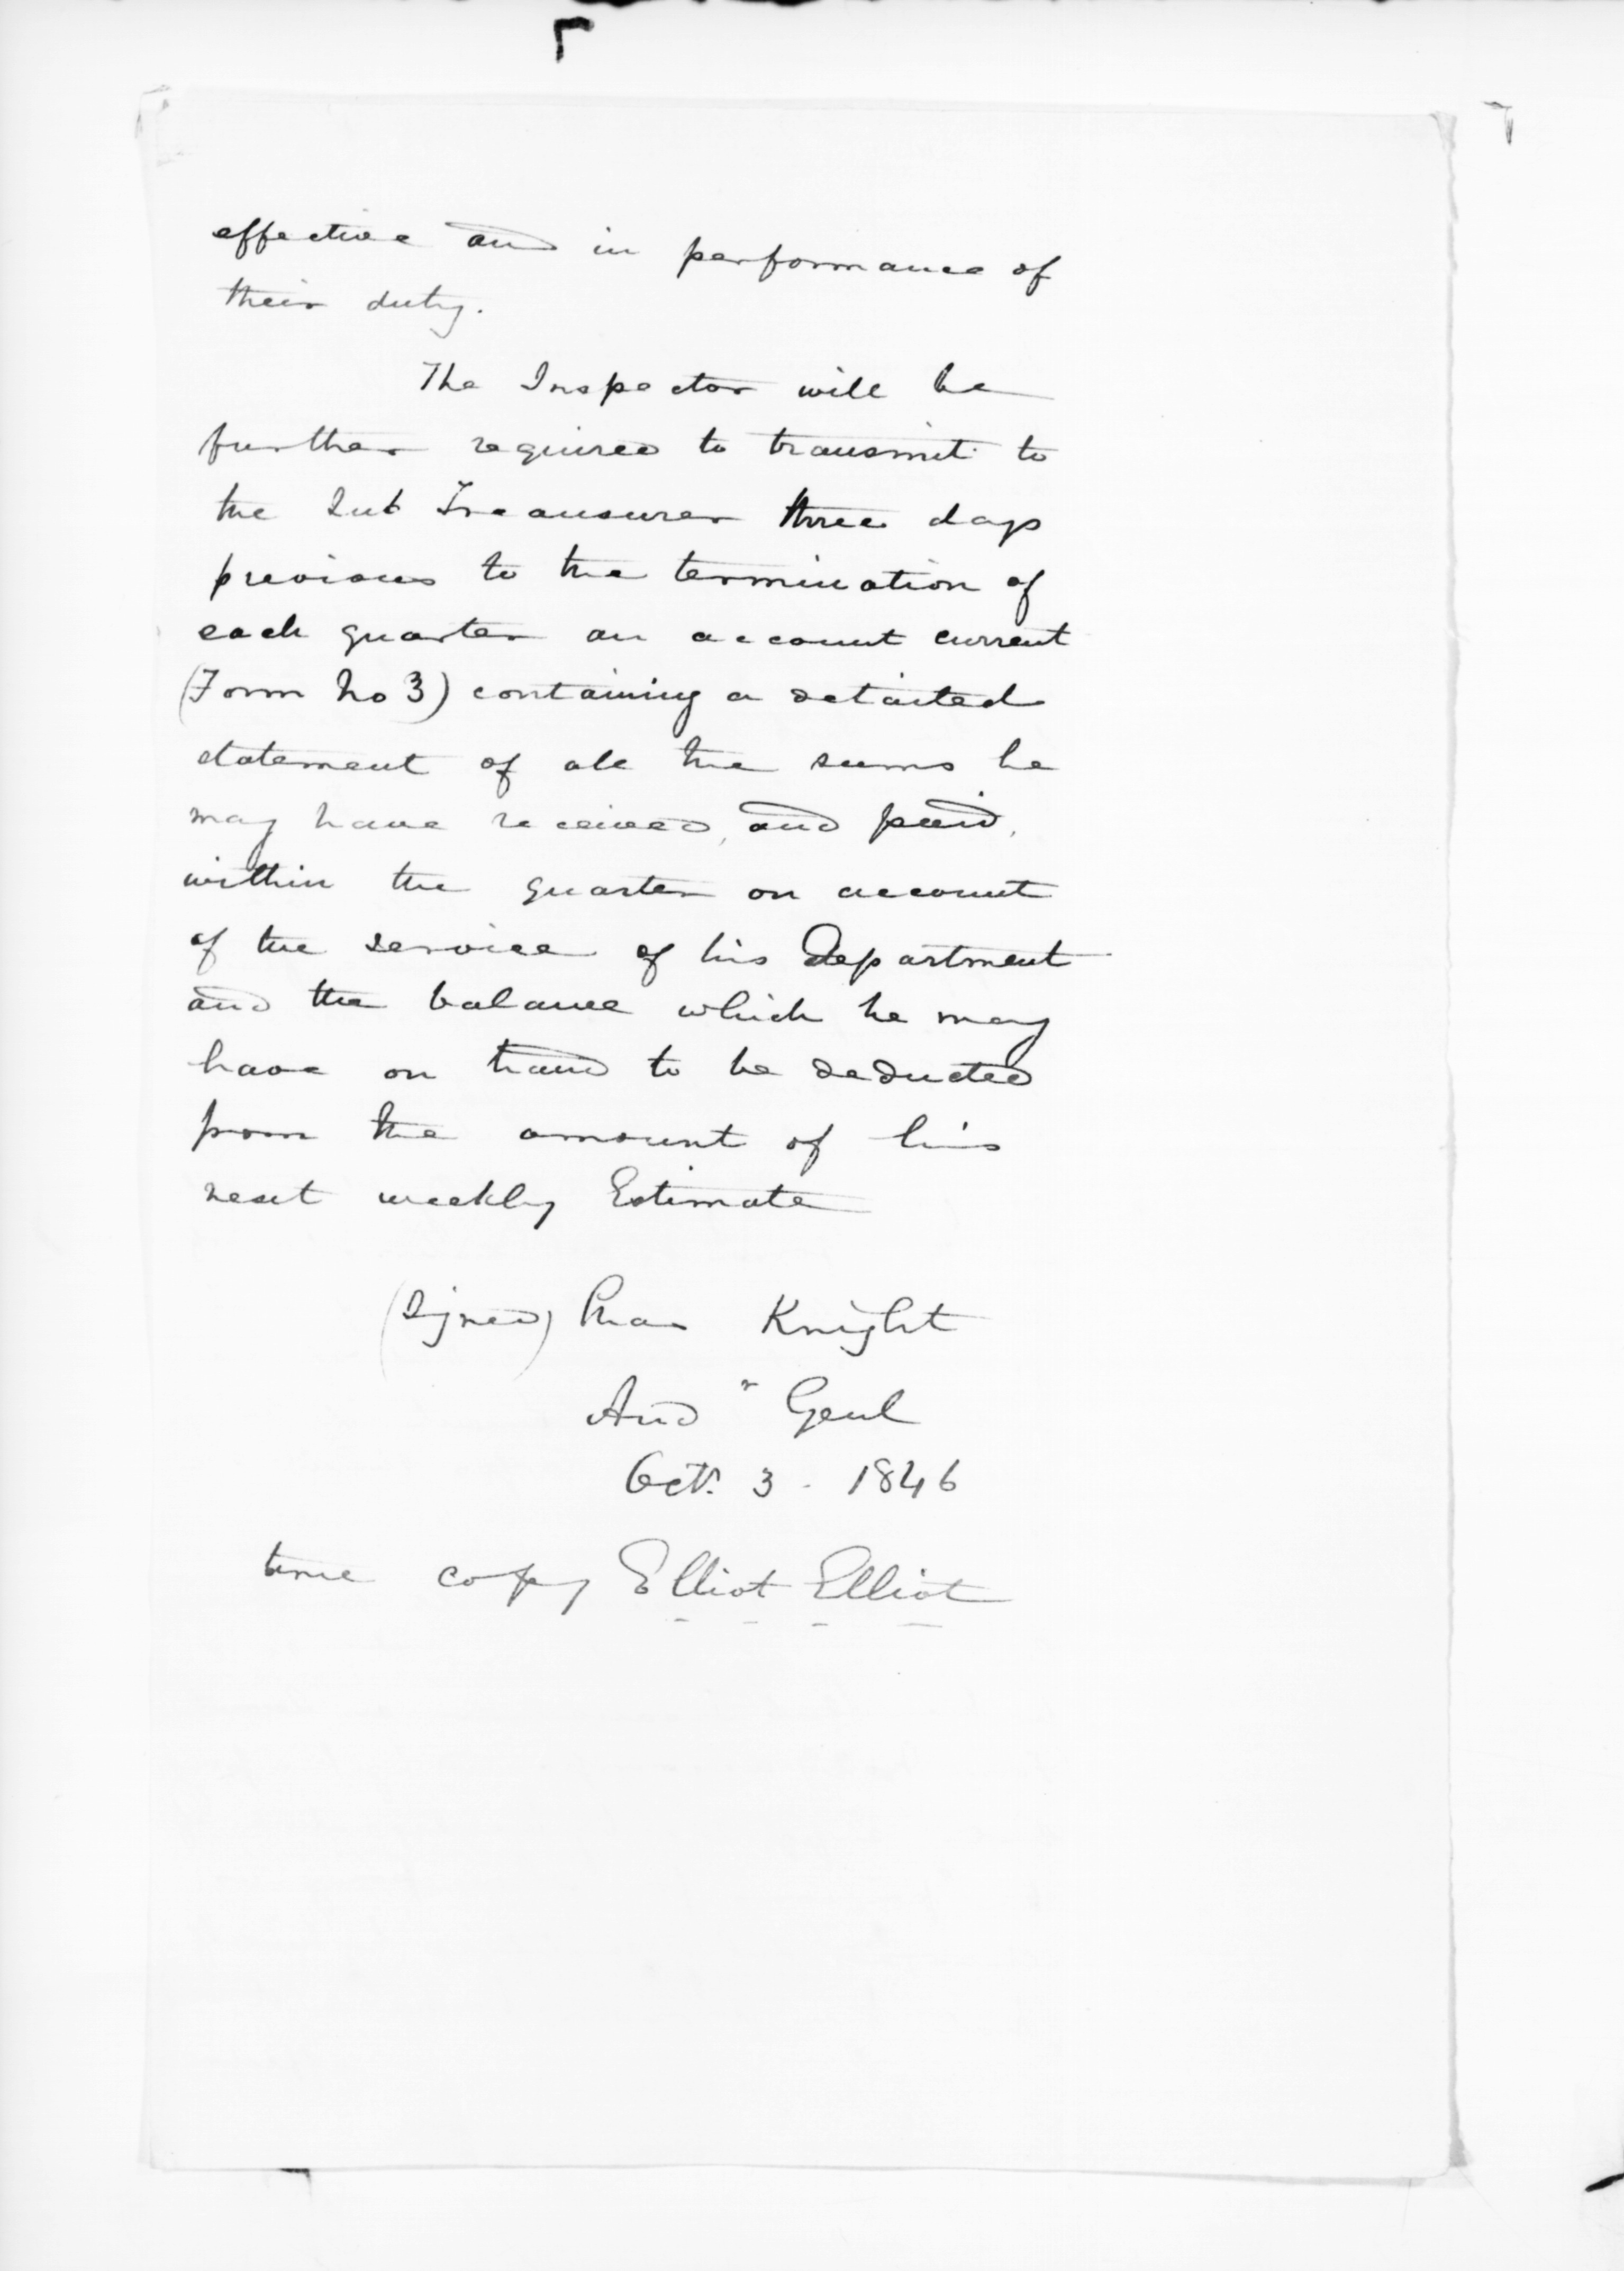 effective and in performance of
their duty.
The Inspector will be
further required to transmit to
the Sub Treausurer three days
previous to the termination of
each quarter an account current
(Form No 3) containing a detailed
statement of all the sums he
may have received, and paid,
within the quarter on account
of the service of his Department
and the balance which he may
have on hand to be deducted
from the amount of his
next weekly Estimate
(Signed) Chas Knight
Aud r Genl
Octr. 3 - 1846
true copy Elliot Elliot